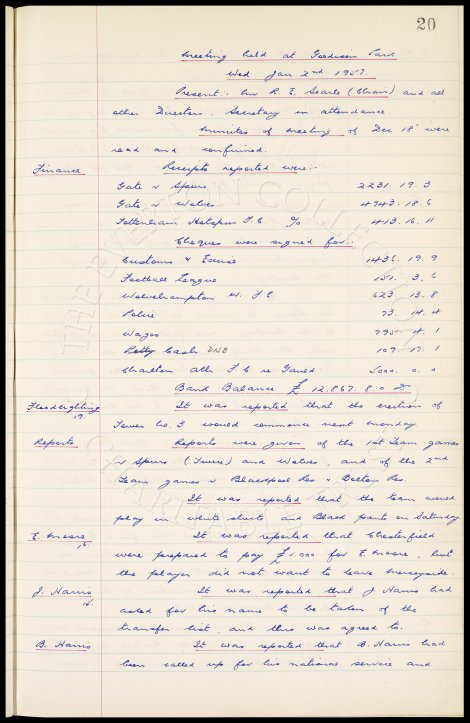 20
Meeting held at Goodison Park
Wed Jan 2nd 1957.
Present: Mr R. E. Searle (Chair) and all
other Directors. Secretary in attendance
Minutes of Meeting of Dec 18' were
read and confirmed.
Finance Receipts reported were:-
Gate v Spurs 2231. 19. 3
Gate v Wolves 4943. 18. 6
Tottenham Hotspur F C 413. 16. 11
Cheques were signed for:-
Customs & Excise 1436. 19. 9
Football League 151. 3. 6
Wolverhampton W. F.C. 623 13. 8
Police 73. 14. 4
Wages 795. 4. 1
Petty Cash DNB 109. 17. 1
Charlton Ath F C re Gauld 5000. 0. 0
Bank Balance £12,867. 8. 0 Dr
Floodlighting It was reported that the erection of
Tower No. 3 would commence next Monday.
Reports Reports were given of the 1st Team games
v Spurs (Twice) and Wolves, and of the 2nd
Team games v Blackpool Res v Bolton Res
It was reported that the team would
play in white shirts and Black pants on Saturday.
E. Moore It was reported that Chesterfield
were prepared to pay £1,000 for E Moore, but
the player did not want to leave Merseyside.
J. Harris It was reported that J Harris had
asked for his name to be taken of the
transfer list, and this was agreed to.
B. Harris It was reported that B. Harris had
been called up for his national service and